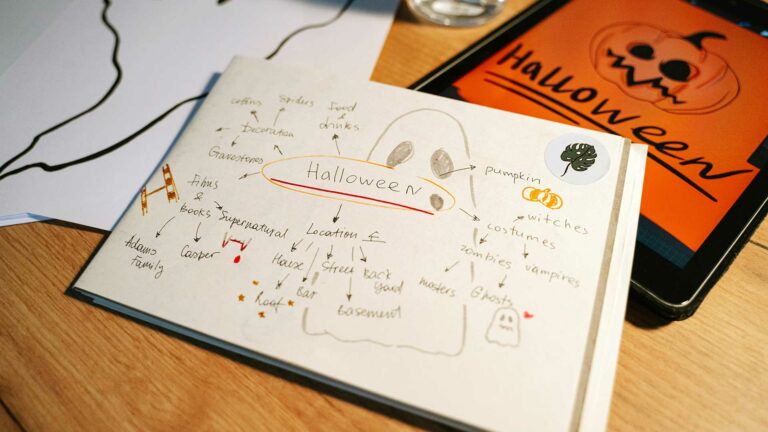 coffins Spiders Food
&
drinks
Decoration
Gravestones
Halloween
pumpkin
Films
&
books
Supernatural
Location
costumes
witches
Adams
Family
Casper
House
Street
Back
yard
zombies
vampires
Roof
Bar
Basement
Ghosts
Halloween